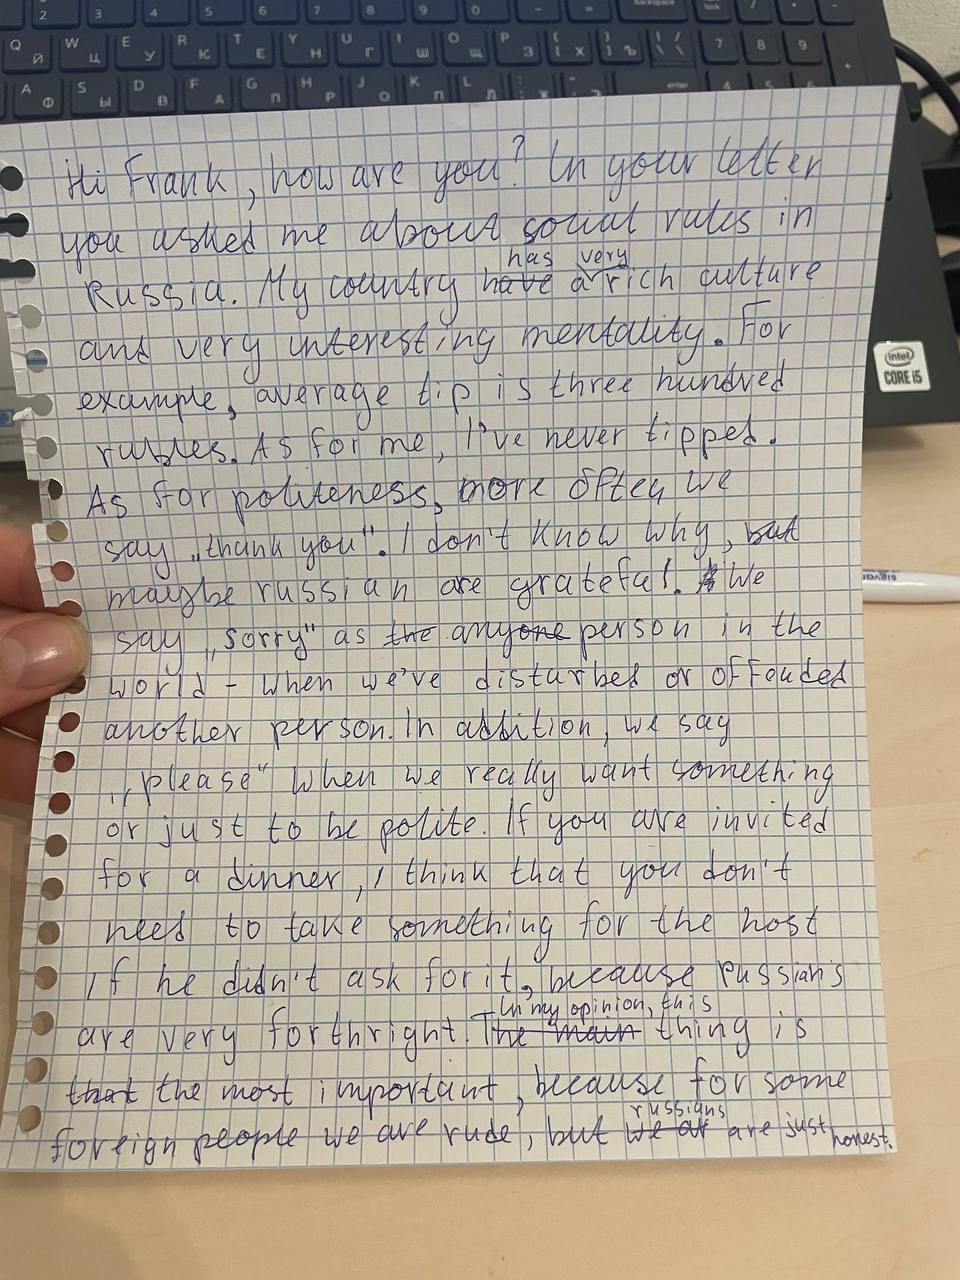 2 3 4 5 6 7 8 9 0 - = backspace
Q Й W Ц E У R К T Е Y Н U Г I Ш O Щ P З { [ Х } ] Ъ | \ / 7 8 9
A Ф S Ы D В F А G П H Р J О K Л L Д : ; Ж " ' Э enter 4 5 6 +
Hi Frank, how are you? In your letter
you asked me about social rules in
has very
Russia. My country have a rich culture
and very interesting mentality. For
example, average tip is three hundred
rubles. As for me, I've never tipped.
As for politeness, more often we
say „thank you". I don't know why, but
maybe russian are grateful. We
say „sorry" as the anyone person in the
world - when we've disturbed or offended
another person. In addition, we say
„please" when we really want something
or just to be polite. If you are invited
for a dinner, I think that you don't
need to take something for the host
if he didn't ask for it, because Russians
In my opinion, this
are very forthright. The main thing is
that the most important, because for some
russians
foreign people we are rude, but we ar are just honest.
intel
CORE i5